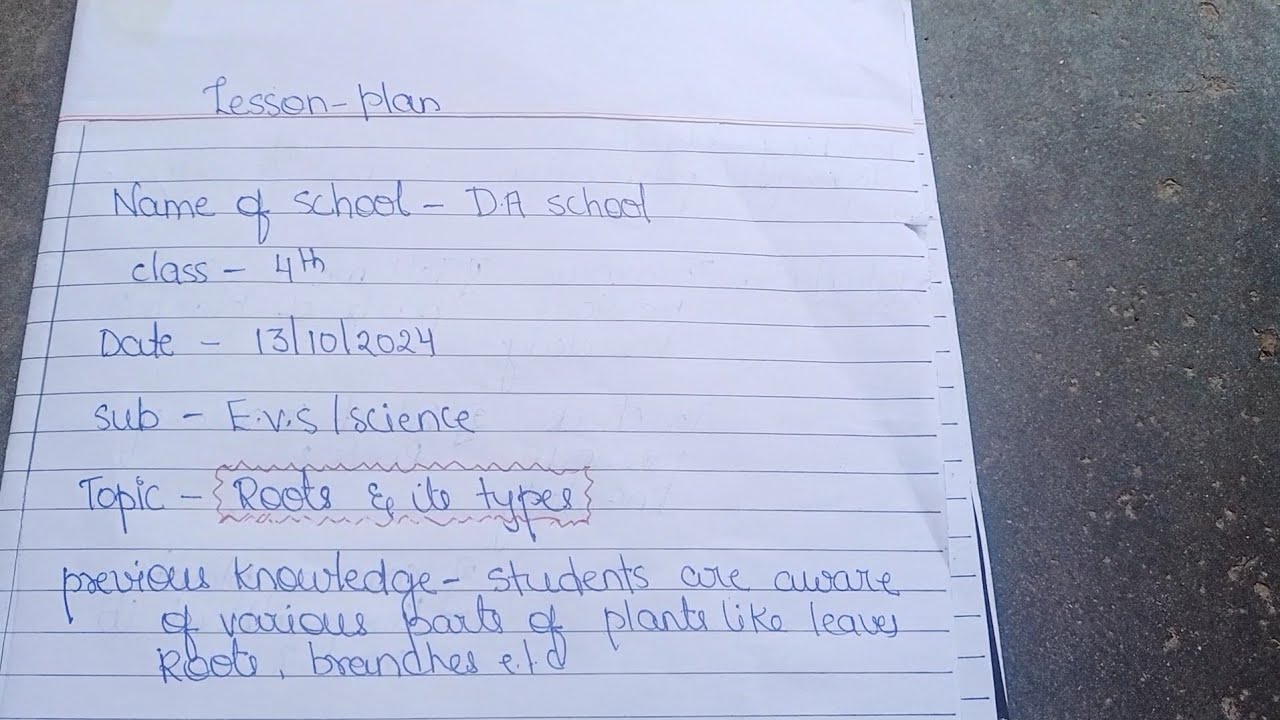 Lesson-plan
Name of school - D.A school
class - 4th
Date - 13/10/2024
Sub - E.V.S/science
Topic - Roots & its types
previous knowledge - students are aware
of various parts of plants like leaves
Roots, brandhes e.t.c